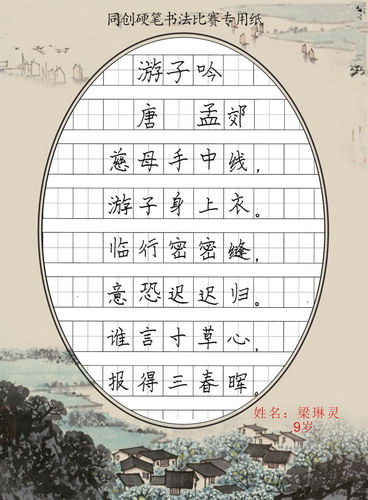 同创硬笔书法比赛专用纸
游子吟
唐 孟郊
慈母手中线,
游子身上衣。
临行密密缝,
意恐迟迟归。
谁言寸草心,
报得三春晖。
姓名：梁琳灵
9岁